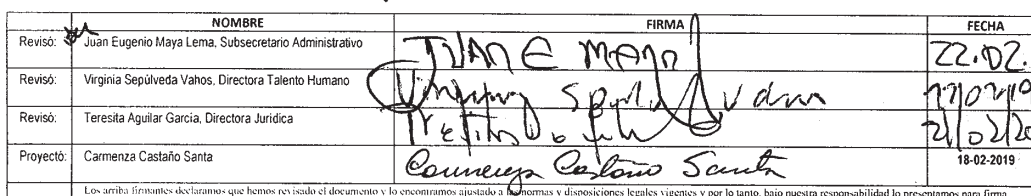 NOMBRE FIRMA FECHA
Revisó: Juan Eugenio Maya Lema, Subsecretario Administrativo JUAN E MAYA 22.02.
Revisó: Virginia Sepúlveda Vahos, Directora Talento Humano
Revisó: Teresita Aguilar García, Directora Jurídica 21/02/20
Proyectó: Carmenza Castaño Santa Carmenza Castaño Santa 18-02-2019
Los arriba firmantes declaramos que hemos revisado el documento y lo encontramos ajustado a las normas y disposiciones legales vigentes y por lo tanto, bajo nuestra responsabilidad lo presentamos para firma